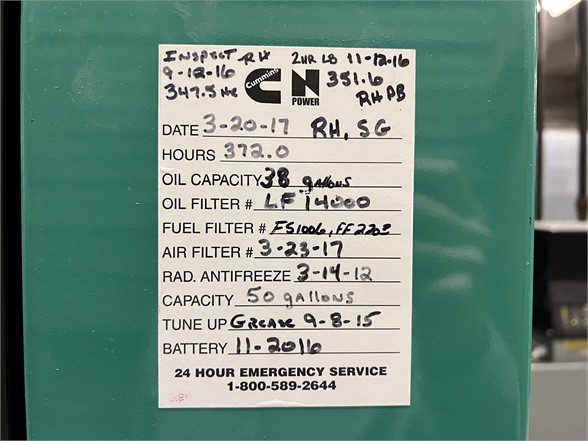 INSPECT RH 2HR LB 11-12-16
9-12-16 Cummins N 351.6
347.5 HR POWER RH PB
DATE 3-20-17 RH, SG
HOURS 372.0
OIL CAPACITY 38 gallons
OIL FILTER # LF 14000
FUEL FILTER # FS1006, FF2203
AIR FILTER # 3-23-17
RAD. ANTIFREEZE 3-14-12
CAPACITY 50 gallons
TUNE UP Grease 9-8-15
BATTERY 11-2016
24 HOUR EMERGENCY SERVICE
1-800-589-2644